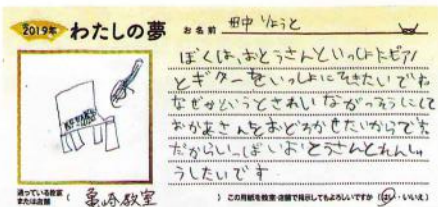 2019年 わたしの夢 お名前 田中 りょうと
ぼくは、おとうさんといっしょにピアノ
とギターをいっしょにできたいでね
なぜかというときれいながっそうにして
おかあさんをおどろかせたいからです
だからいっぱいおとうさんとれんしゅ
うしたいです
通っている教室または店舗 ( 亀崎教室 ) この用紙を教室・店舗で掲示してもよろしいですか (はい・いいえ)